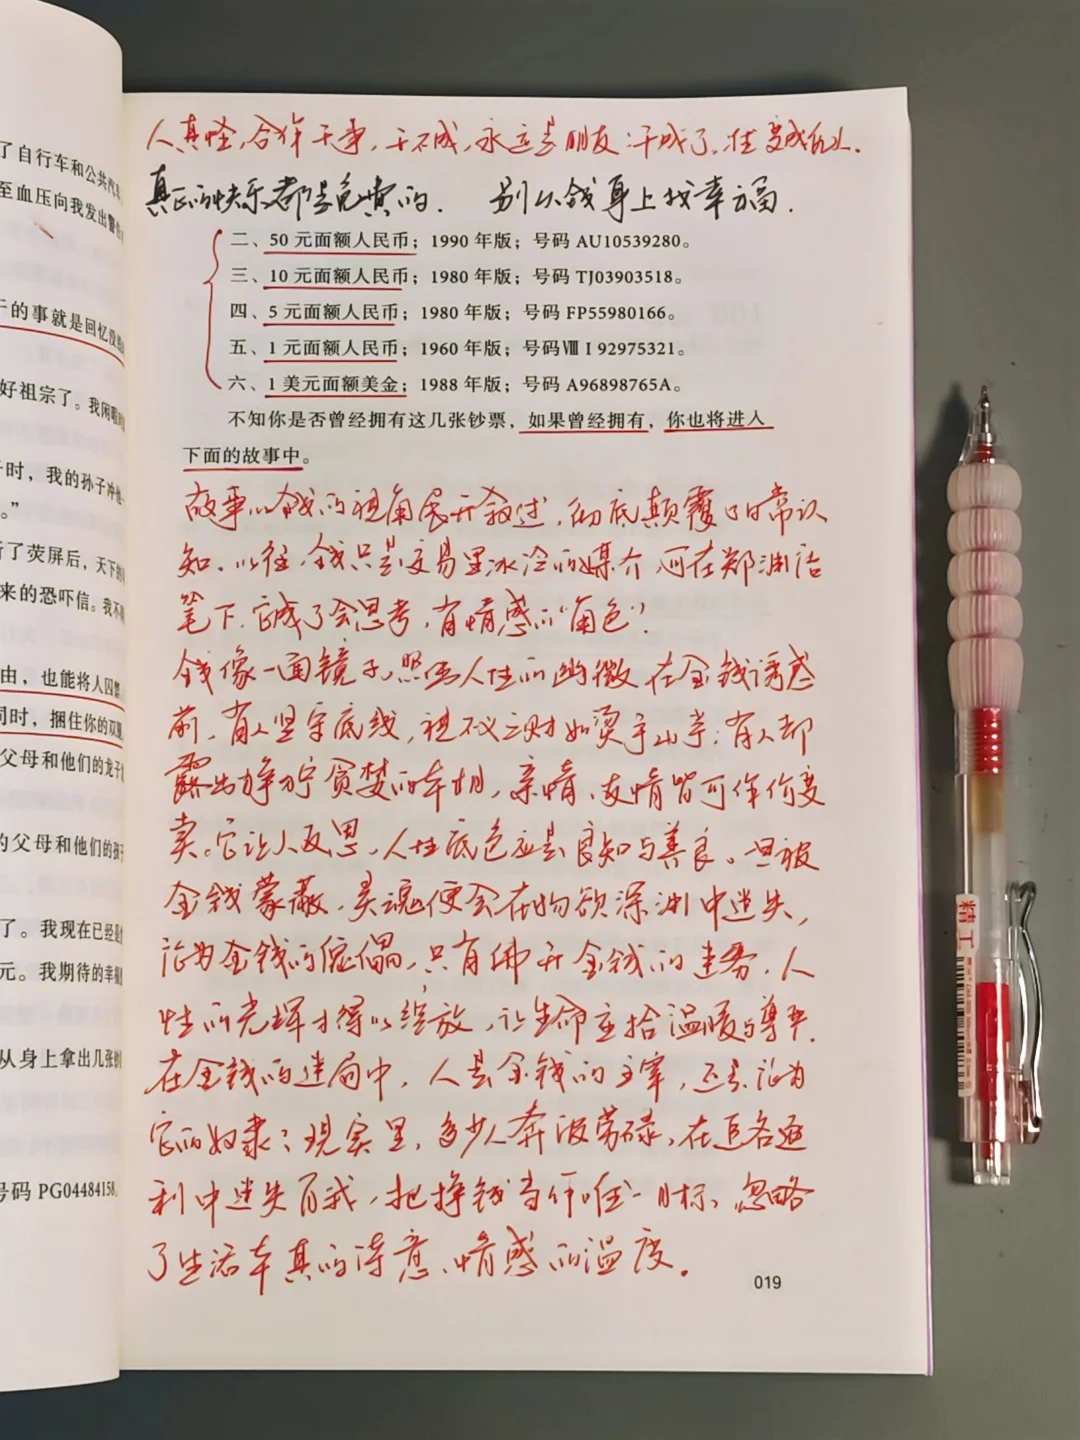 了自行车和公共汽车
至血压向我发出警告
干的事就是回忆没
好祖宗了。我闲暇
时，我的孙子冲他
。”
了荧屏后，天下的
来的恐吓信。我不
由，也能将人囚禁
同时，捆住你的双腿
父母和他们的龙子
的父母和他们的孩子
了。我现在已经是
元。我期待的幸福
从身上拿出几张钞
号码 PG04484158。
人真怪，合作干事，干不成，永远是朋友；干成了，往变成仇人.
真正的快乐都是免费的. 别从钱身上找幸福.
二、50 元面额人民币；1990 年版；号码 AU10539280。
三、10 元面额人民币；1980 年版；号码 TJ03903518。
四、5 元面额人民币；1980 年版；号码 FP55980166。
五、1 元面额人民币；1960 年版；号码Ⅷ Ⅰ 92975321。
六、1 美元面额美金；1988 年版；号码 A96898765A。
不知你是否曾经拥有这几张钞票，如果曾经拥有，你也将进入
下面的故事中。
故事以钱的视角展开叙述，彻底颠覆了日常认
知。以往，钱只是交易里冰冷的媒介，可在郑渊洁
笔下，它成了会思考，有情感的“角色”！
钱像一面镜子，照出人性的幽微，在金钱诱惑
前，有人坚守底线，视不义之财如烫手山芋；有人却
露出狰狞贪婪的本相，亲情、友情皆可作价变
卖。它让人反思，人性底色应是良知与善良。一旦被
金钱蒙蔽，灵魂便会在物欲深渊中迷失，
沦为金钱的傀儡，只有拂开金钱的迷雾，人
性的光辉才得以绽放，让生命重拾温暖与尊严.
在金钱的迷局中，人是金钱的主宰，还是沦为
它的奴隶？现实里，多少人奔波劳碌，在追名逐
利中迷失自我，把挣钱当作唯一目标，忽略
了生活本真的诗意、情感的温度。
019
精工